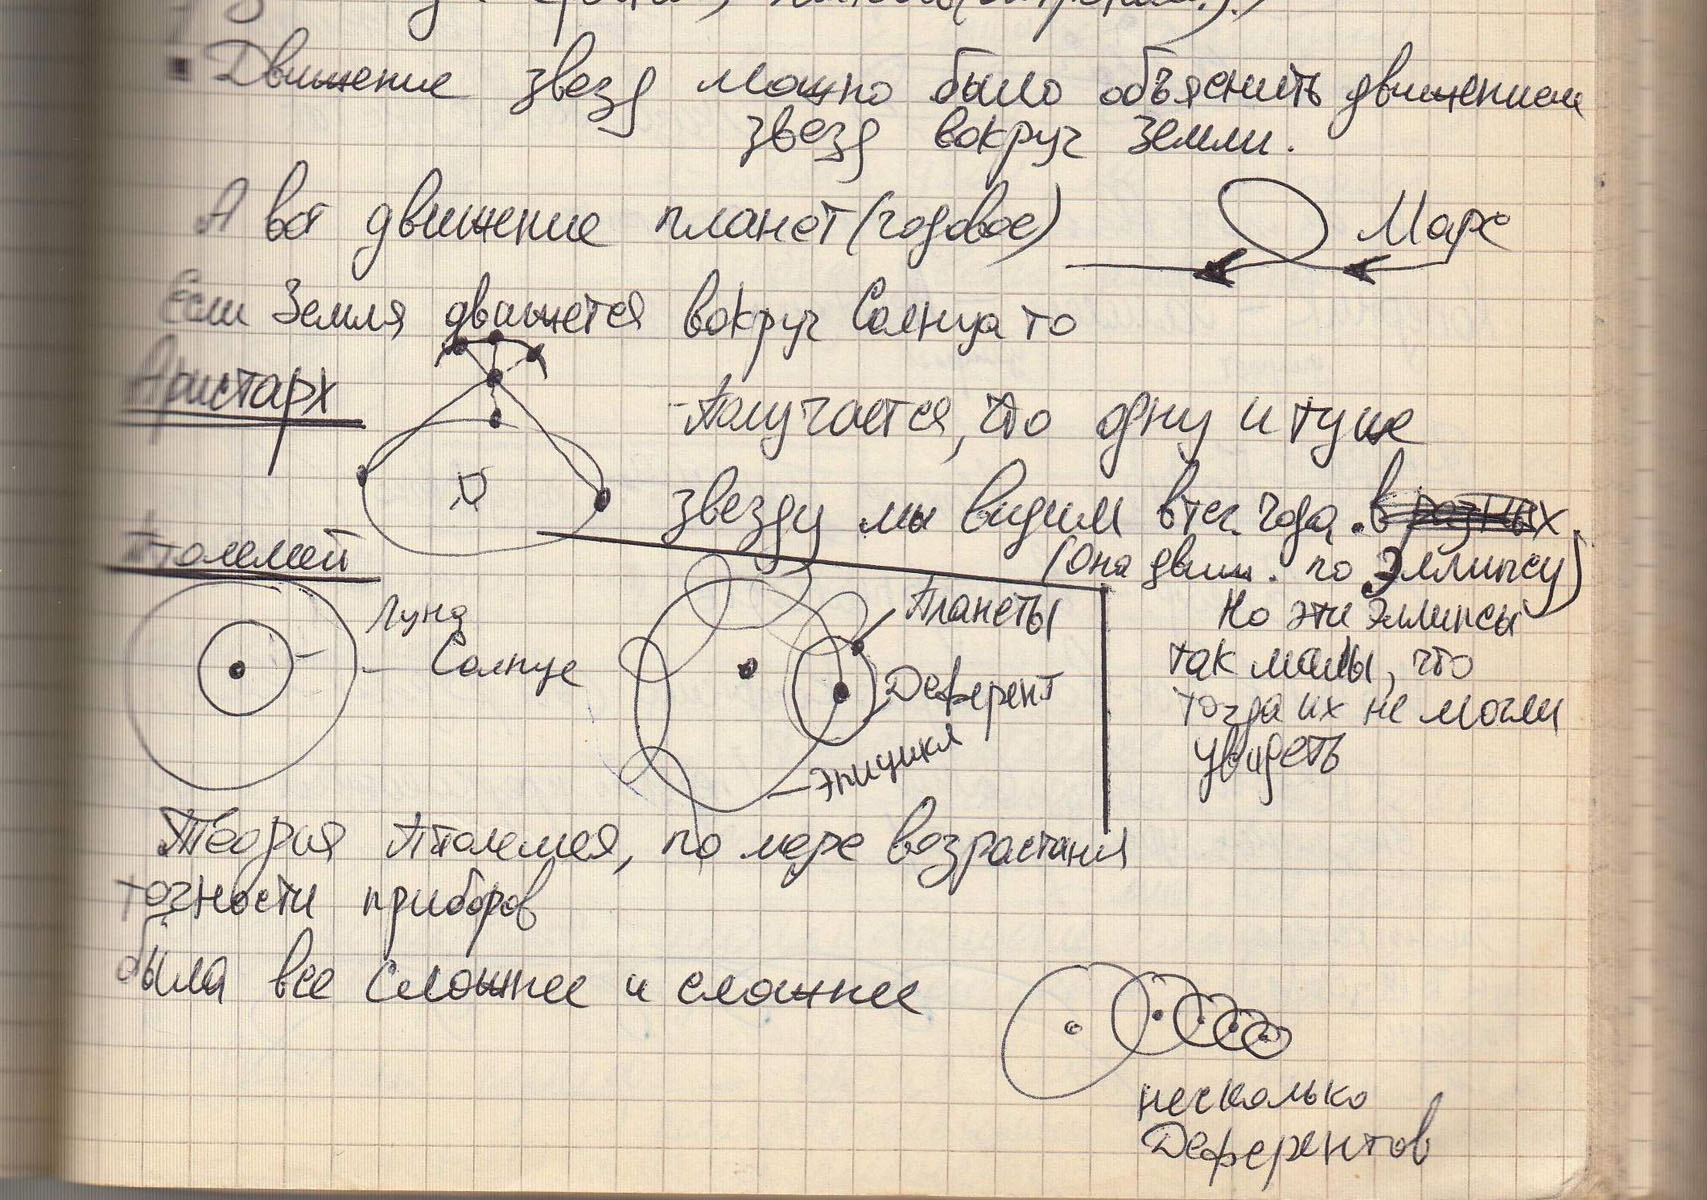 Движение звезд можно было объяснить движением
звезд вокруг Земли.
А вот движение планет (годовое)
Марс
Если Земля движется вокруг Солнца то
Аристарх
Получается, что одну и туже
звезду мы видим в теч. года . в разных
(она движ. по Эллипсу)
Но эти Эллипсы
так малы, что
тогда их не могли
увидеть
Птолемей
Луна
Солнце
Планеты
Деферент
Эпицикл
Теория Птолемея, по мере возрастания
точности приборов
была все сложнее и сложнее
несколько
Деферентов